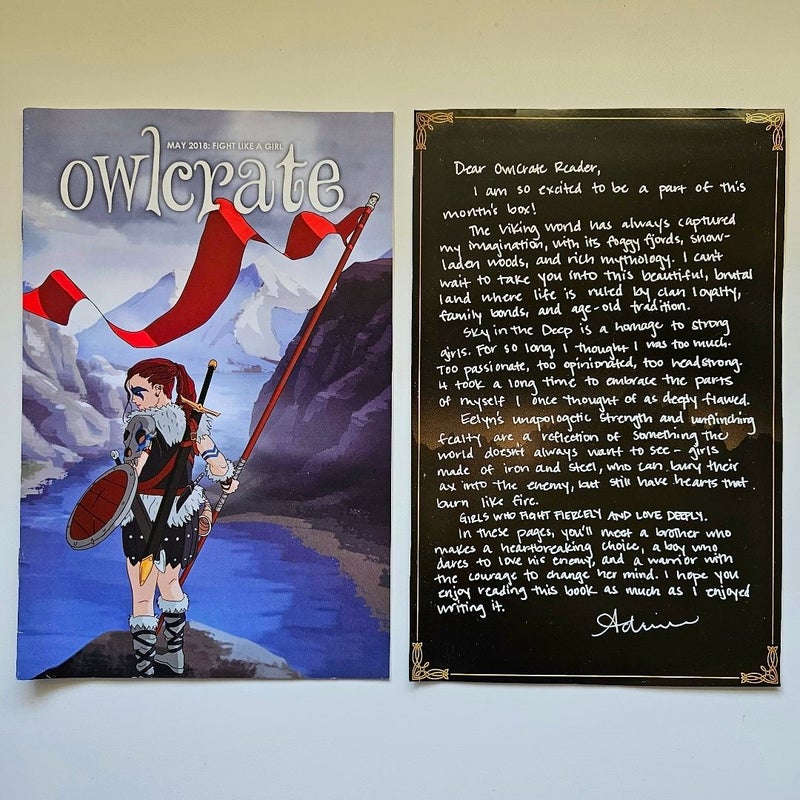 MAY 2018: FIGHT LIKE A GIRL
owlcrate
Dear OwlCrate Reader,
I am so excited to be a part of this
month's box!
The Viking world has always captured
my imagination, with its foggy fjords, snow-
laden woods, and rich mythology. I can't
wait to take you into this beautiful, brutal
land where life is ruled by clan loyalty,
family bonds, and age-old tradition.
Sky in the Deep is a homage to strong
girls. For so long, I thought I was too much.
Too passionate, too opinionated, too headstrong.
It took a long time to embrace the parts
of myself I once thought of as deeply flawed.
Eelyn's unapologetic strength and unflinching
fealty are a reflection of something the
world doesn't always want to see - girls
made of iron and steel, who can bury their
ax into the enemy, but still have hearts that
burn like fire.
GIRLS WHO FIGHT FIERCELY AND LOVE DEEPLY.
In these pages, you'll meet a brother who
makes a heartbreaking choice, a boy who
dares to love his enemy, and a warrior with
the courage to change her mind. I hope you
enjoy reading this book as much as I enjoyed
writing it.
Adrienne